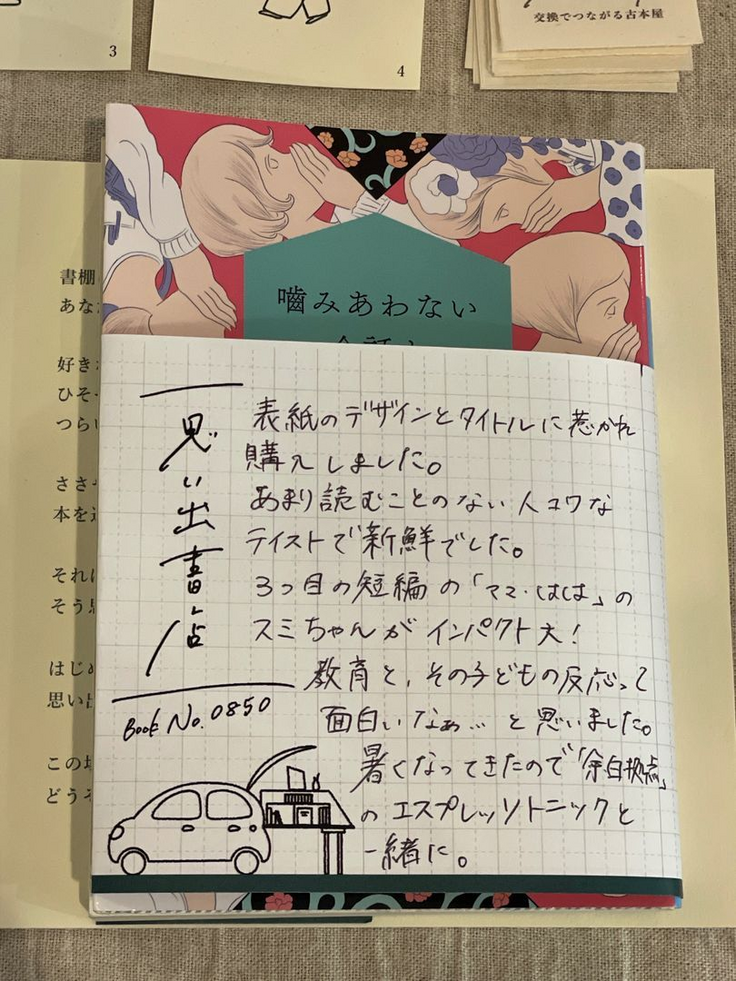 3
4
交換でつながる古本屋
書棚
あな
好き
ひそ
つら
ささ
本を
それ
そう
はじ
思い
この
どう
噛みあわない
思い出書店
Book No. 0850
表紙のデザインとタイトルに惹かれ
購入しました。
あまり読むことのない人コワな
テイストで新鮮でした。
3つ目の短編の「ママ・はは」の
スミちゃんがインパクト大!
教育と、その子どもの反応って
面白いなぁ…と思いました。
暑くなってきたので「余白拠点」
のエスプレッソトニックと
一緒に。